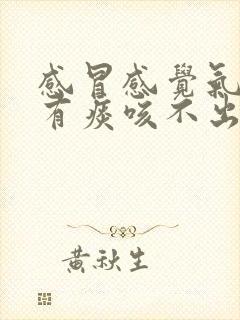 感冒感覺氣
有痰咳不出
黃秋生